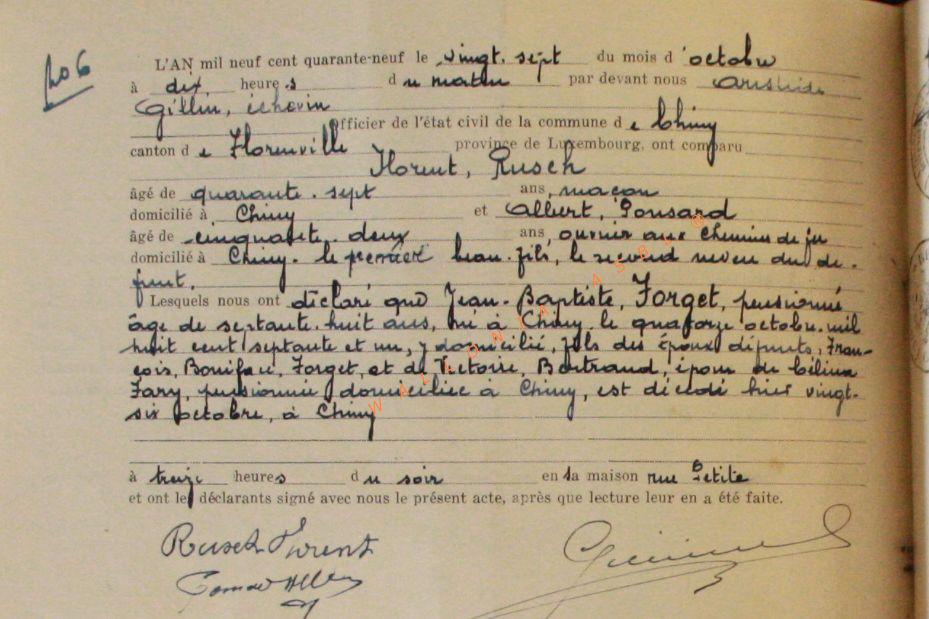 206
L'AN mil neuf cent quarante-neuf le vingt-sept du mois d'octobre
à dix heures du matin par devant nous Aristide
Gillin, échevin
officier de l'état civil de la commune de Chiny
canton de Florenville province de Luxembourg, ont comparu
Florent, Rusch
âgé de quarante-sept ans, maçon
domicilié à Chiny et Albert, Ponsard
âgé de cinquante-deux ans, ouvrier aux chemin de fer
domicilié à Chiny. le premier beau-fils, le second neveu du dé-
funt.
Lesquels nous ont déclaré que Jean-Baptiste, Forget, pensionné
âge de septante-huit ans, né à Chiny, le quatorze octobre mil
huit cent septante et un, y domicilié, fils des époux défunts, Fran-
çois, Boniface, Forget, et de Victoire, Bertrand, époux de Célina
Fary, pensionnée, domiciliée à Chiny, est décédé hier vingt-
six octobre, à Chiny
à treize heures du soir en sa maison rue Petite
et ont les déclarants signé avec nous le présent acte, après que lecture leur en a été faite.
Rusch Florent